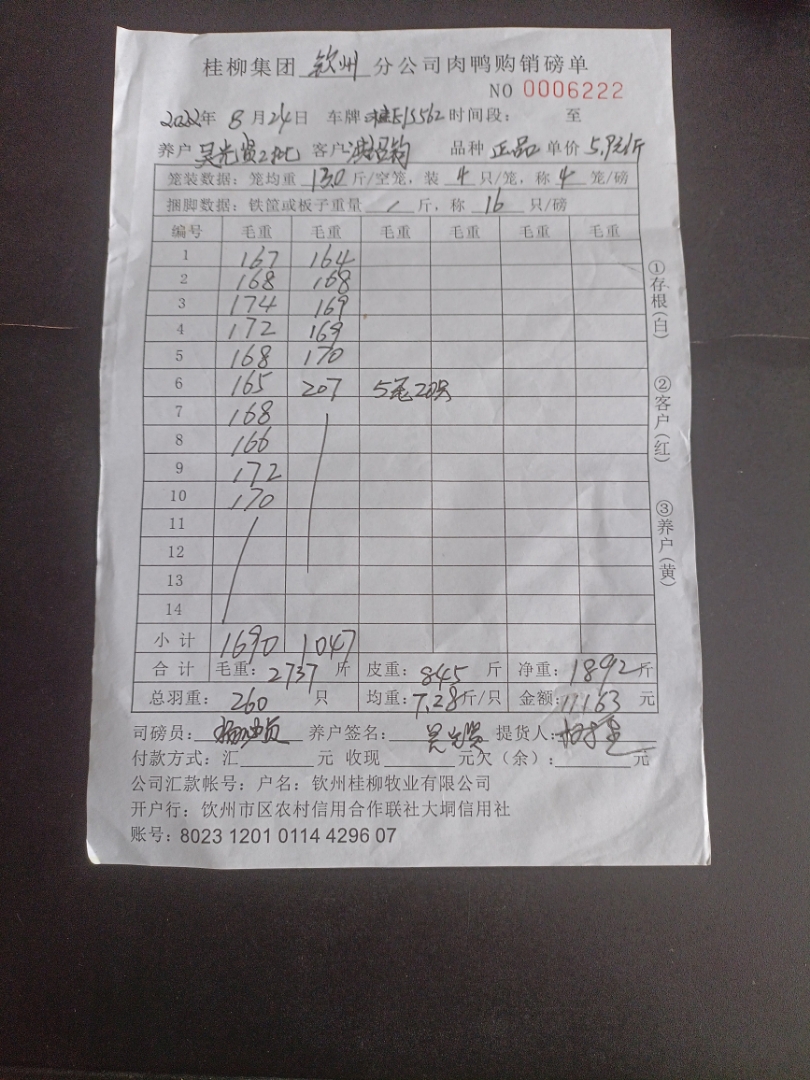 桂柳集团 钦州 分公司肉鸭购销磅单
NO 0006222
2022年 8 月 24 日 车牌 桂E1S562 时间段： 至
养户 吴光贤2批 客户 品种 正品 单价 5.9元/斤
笼装数据：笼均重 13.0 斤/空笼，装 4 只/笼，称 4 笼/磅
捆脚数据：铁筐或板子重量 / 斤，称 16 只/磅
编号 毛重 毛重 毛重 毛重 毛重 毛重
1 167 164
2 168 168
3 174 169
4 172 169
5 168 170
6 165 207 5笼20只
7 168
8 166
9 172
10 170
11
12
13
14
小计 1690 1047
合计 毛重：2737 斤 皮重：845 斤 净重：1892 斤
总羽重：260 只 均重：7.28 斤/只 金额：11163 元
司磅员： 养户签名：吴光贤 提货人：
付款方式：汇 元 收现 元欠（余）： 元
公司汇款帐号：户名：钦州桂柳牧业有限公司
开户行：钦州市区农村信用合作联社大垌信用社
账号：8023 1201 0114 4296 07
①存根(白)
②客户(红)
③养户(黄)